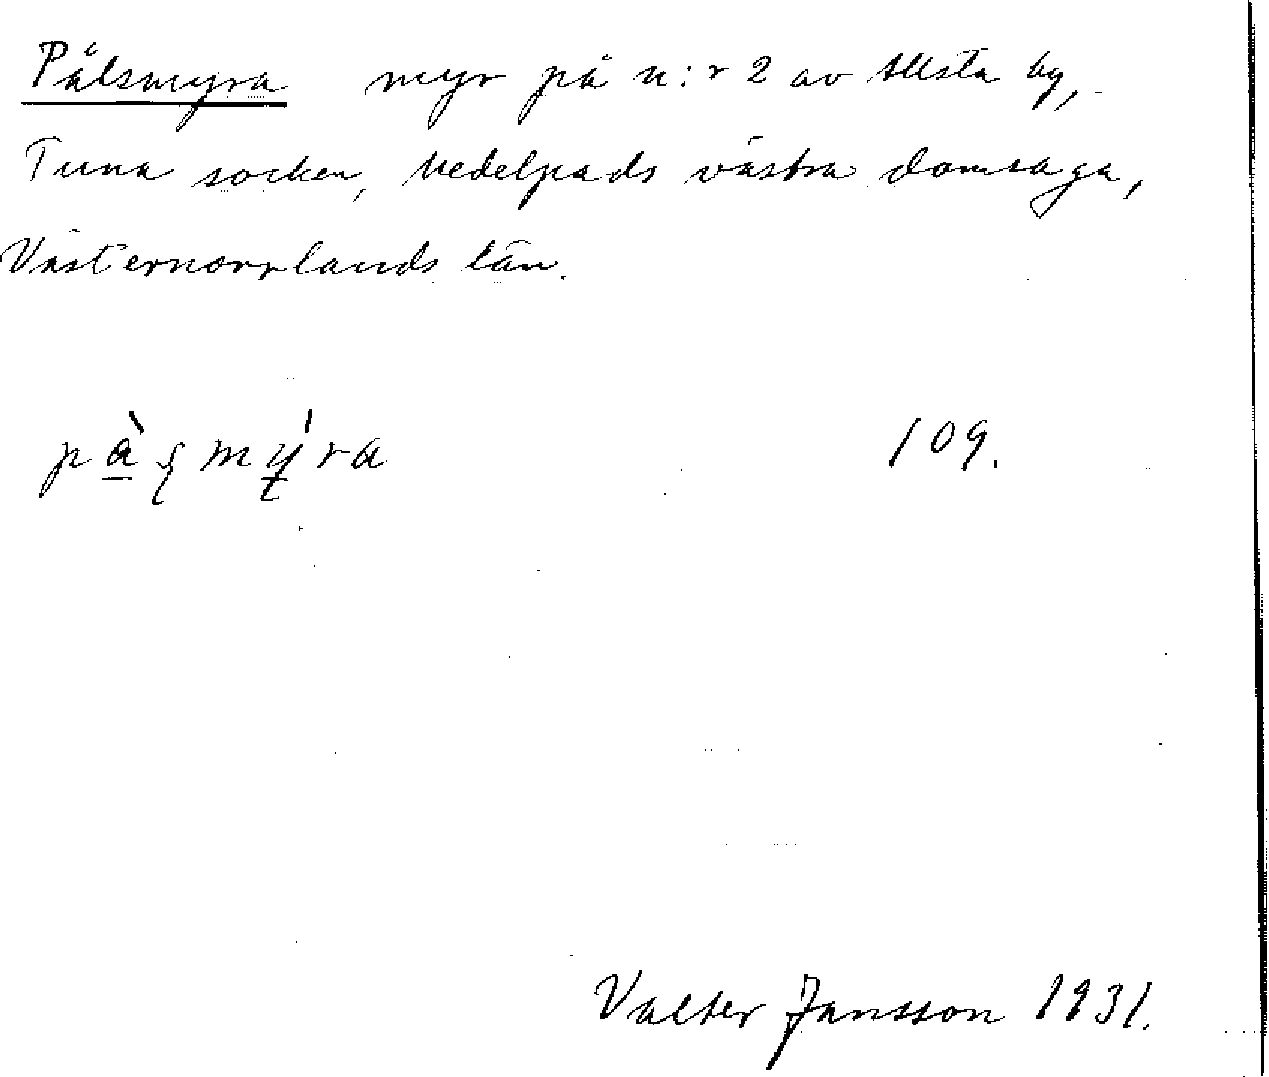 Pålsmyra myr på n:r 2 av Allsta by,
Tuna socken, Medelpads västra domsaga,
Västernorrlands län.
pàʂmy̍ra 109.
Valter Jansson 1931.